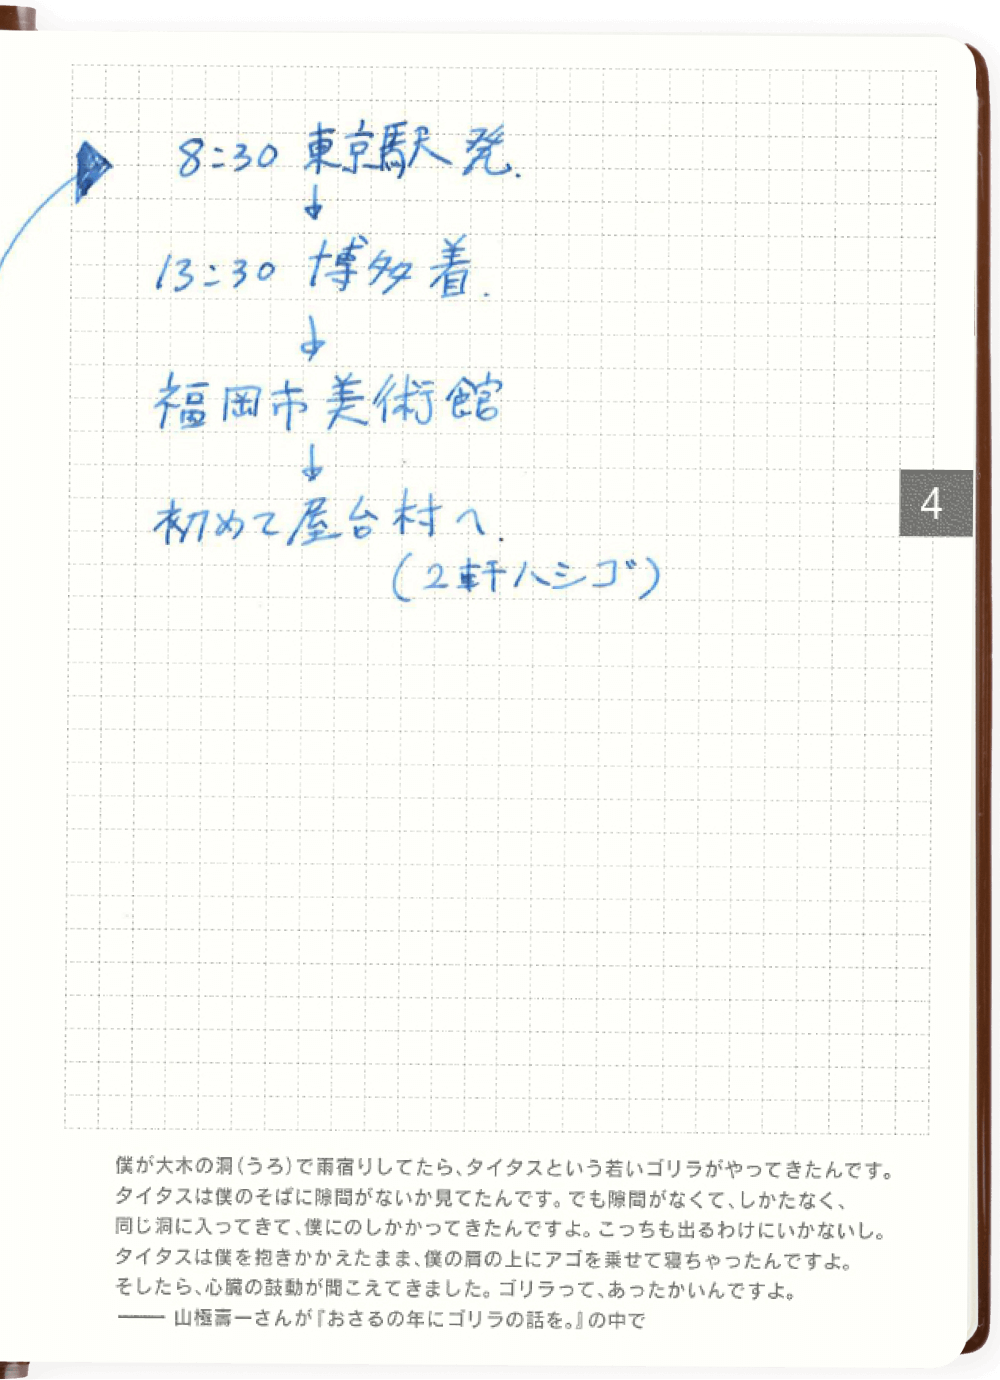 8:30 東京駅発.
↓
13:30 博多着.
↓
福岡市美術館
↓
初めて屋台村へ.
(2軒ハシゴ)
4
僕が大木の洞(うろ)で雨宿りしてたら、タイタスという若いゴリラがやってきたんです。
タイタスは僕のそばに隙間がないか見てたんです。でも隙間がなくて、しかたなく、
同じ洞に入ってきて、僕にのしかかってきたんですよ。こっちも出るわけにいかないし。
タイタスは僕を抱きかかえたまま、僕の肩の上にアゴを乗せて寝ちゃったんですよ。
そしたら、心臓の鼓動が聞こえてきました。ゴリラって、あったかいんですよ。
—— 山極壽一さんが『おさるの年にゴリラの話を。』の中で